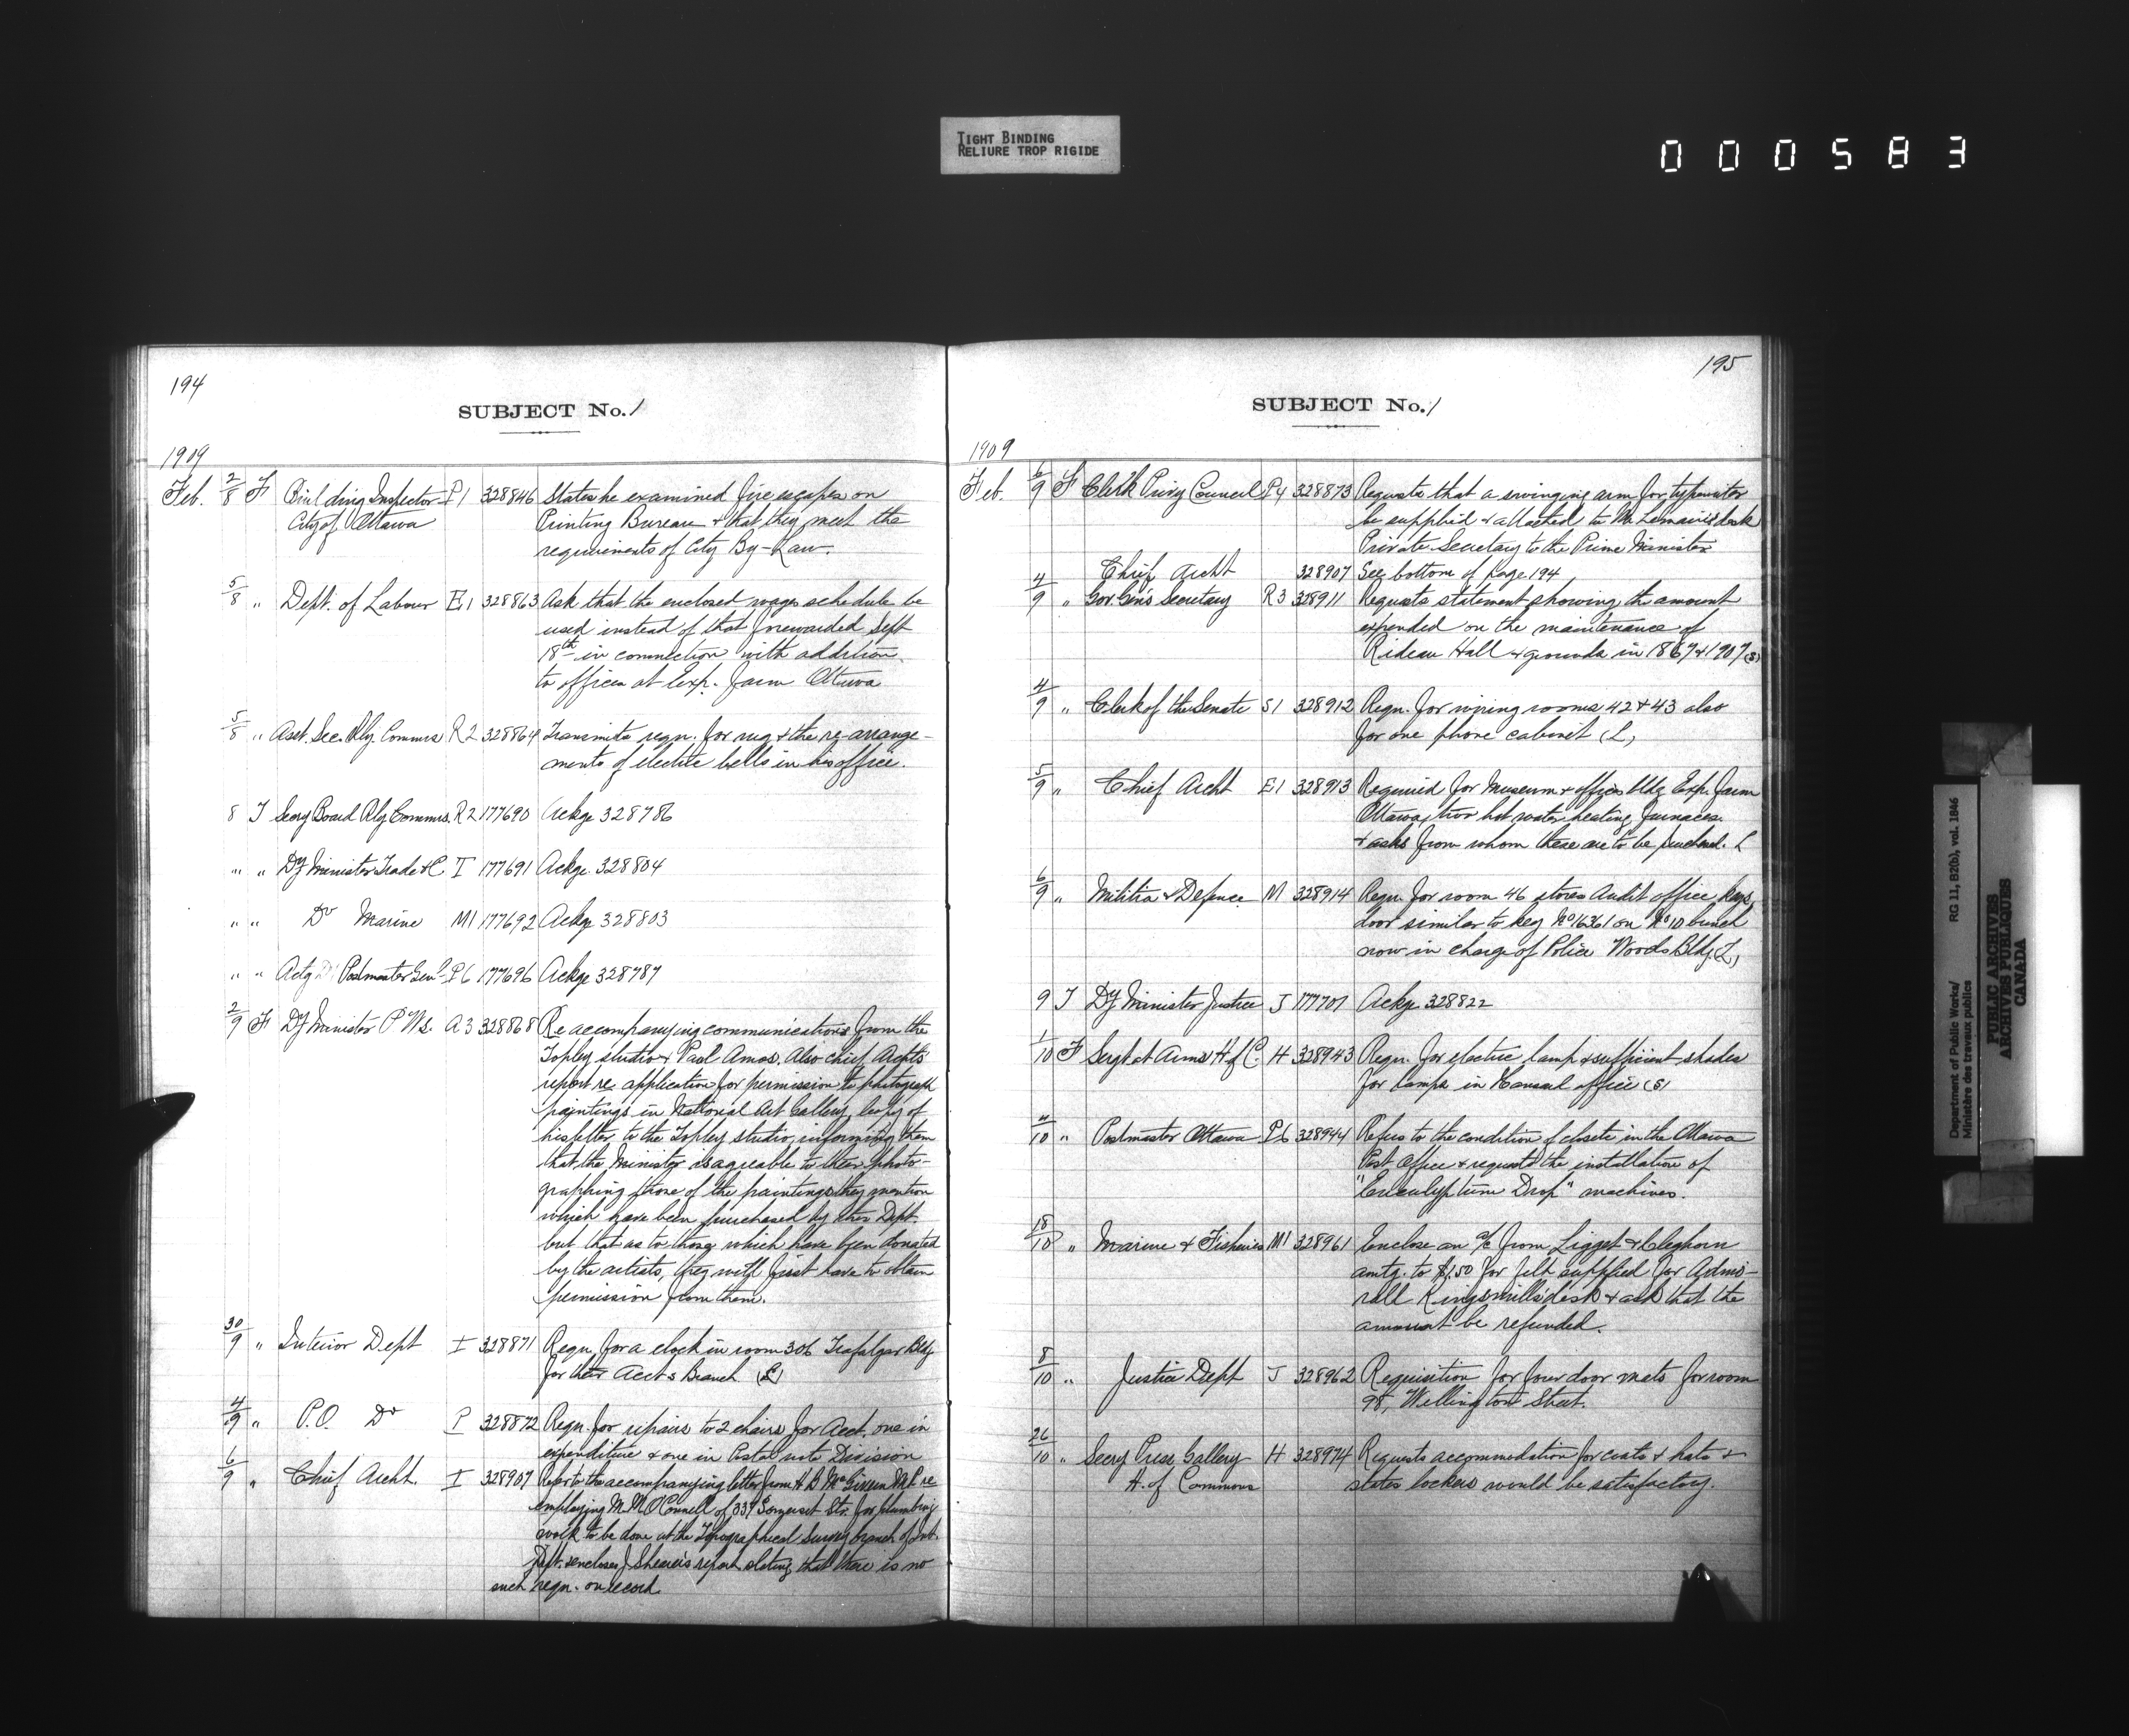 TIGHT BINDING
RELIURE TROP RIGIDE
000583
194
SUBJECT No. 1
1909
Feb. 2/8 F Building Inspector P1 328846 States he examined fire escapes on
City of Ottawa Printing Bureau & that they meet the
requirements of City By-Law.
5/8 " Dept. of Labour E1 328863 Ask that the enclosed wages schedule be
used instead of that forewarded Sept
18th in connection with addition
to offices at Exp. Farm Ottawa
5/8 " Asst. Sec. Rly. Commrs R2 328864 Transmits reqn. for rug & the re-arrange-
ments of electric bells in his office.
8 T Secry Board Rly Commrs. R2 177690 Ackge 328786
" " Dy Minister Trade & C. T 177691 Ackge. 328804
" " Do Marine M1 177692 Ackge 328803
" " Actg Dy Postmaster Genl P6 177696 Ackge 328787
2/9 F Dy Minister P. Ws. A3 328868 Re accompanying communications from the
Topley studio & Paol Amos. Also chief Archts
report re application for permission to photograph
paintings in National Art Gallery, copy of
his letter to the Topley studio, informing them
that the Minister is agreable to their photo-
graphing those of the paintings they mention
which have been purchased by this Dept.
but that as to those which have been donated
by the artists, they will first have to obtain
permission from them.
30/9 " Interior Dept I 328871 Reqn. for a clock in room 306 Trafalgar Bldg
for their Accts Branch (L)
4/9 " P.O. Do P 328872 Reqn. for repairs to 2 chairs for Acct. one in
expenditure & one in Postal note Division
6/9 " Chief Archt. I 328907 Refers to the accompanying letter from H B McGiverin M.P. re
employing M. M. O'Connell of 337 Somerset Str. for plumbing
work to be done at the Topographical Survey branch of Int.
Dept. encloses J Shearer's report stating that there is no
such reqn. on record
195
SUBJECT No. 1
1909
Feb. 6/9 F Clerk Privy Council P4 328873 Requests that a swinging arm for typewriter
be supplied & attached to Mr Lemaire's desk
Private Secretary to the Prime Minister
Chief Archt 328907 See bottom of page 194
4/9 " Gov. Gen's Secretary R3 328911 Requests statement showing the amount
expended on the maintenance of
Rideau Hall & grounds in 1867 & 1907 (S)
4/9 " Clerk of the Senate S1 328912 Reqn. for wiring rooms 42 & 43 also
for one phone cabinet (L)
5/9 " Chief Archt E1 328913 Required for Museum & offices bldg Exp. Farm
Ottawa, two hot water heating furnaces.
& asks from whom these are to be purchased. L
6/9 " Militia & Defence M 328914 Reqn. for room 46 stores Audit office keys
door similar to key No 16361 on No 10 bunch
now in charge of Police Woods Bldg. (L)
9 T Dy Minister Justice J 177707 Ackge 328822
1/10 F Sergt at Arms H of C. H 328943 Reqn. for electric lamp & sufficient shades
for lamps in Hansard office (S)
4/10 " Postmaster Ottawa P6 328944 Refers to the condition of closets in the Ottawa
Post Office & requests the installation of
" Drop" machines.
18/10 " Marine & Fisheries M1 328961 Enclose an a/c from Ligget & Cleghorn
amtg. to $1.50 for felt supplied for Admi-
rall Kingsmill's desk & ask that the
amount be refunded.
8/10 " Justice Dept J 328962 Requisition for four door mats for room
98, Wellington Street.
26/10 " Secry Press Gallery H 328974 Requests accommodation for coats & hats &
H. of Commons states lockers would be satisfactory.
Department of Public Works/ RG 11, B2(b), vol. 1846
Ministère des travaux publics
PUBLIC ARCHIVES
ARCHIVES PUBLIQUES
CANADA